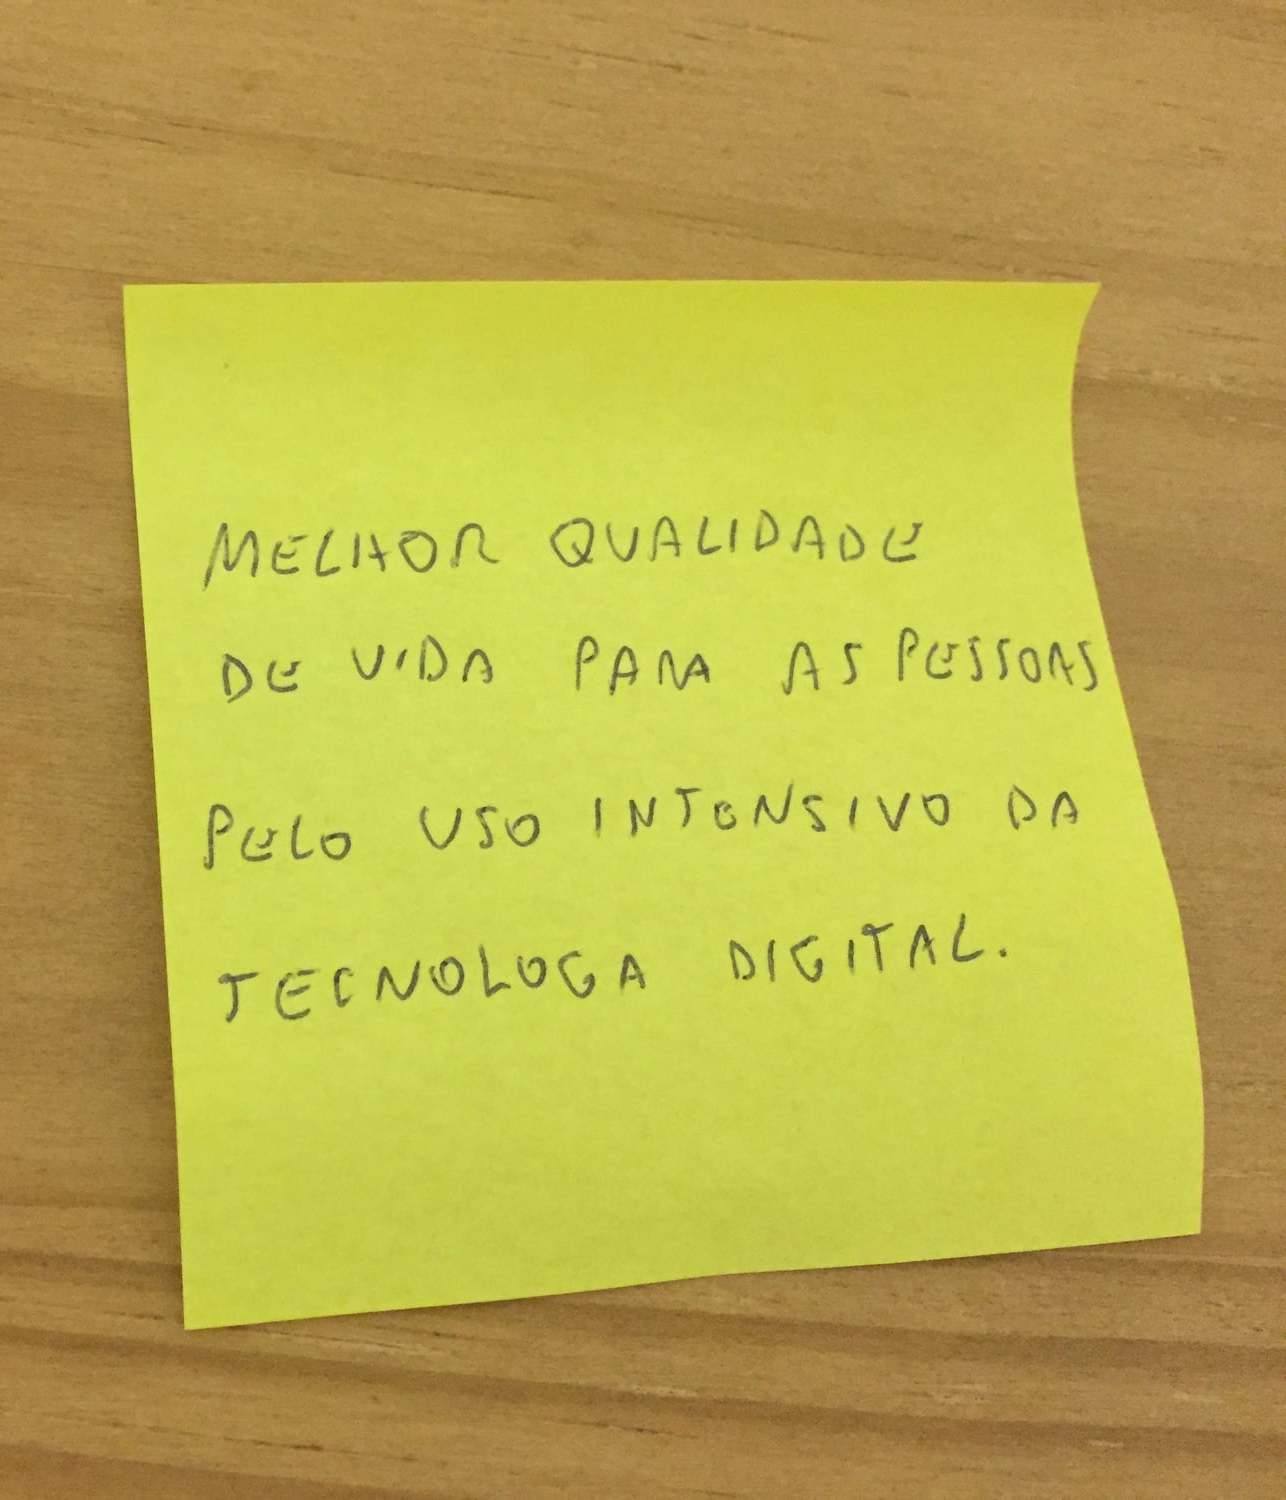 MELHOR QUALIDADE
DE VIDA PARA AS PESSOAS
PELO USO INTENSIVO DA
TECNOLOGA DIGITAL.